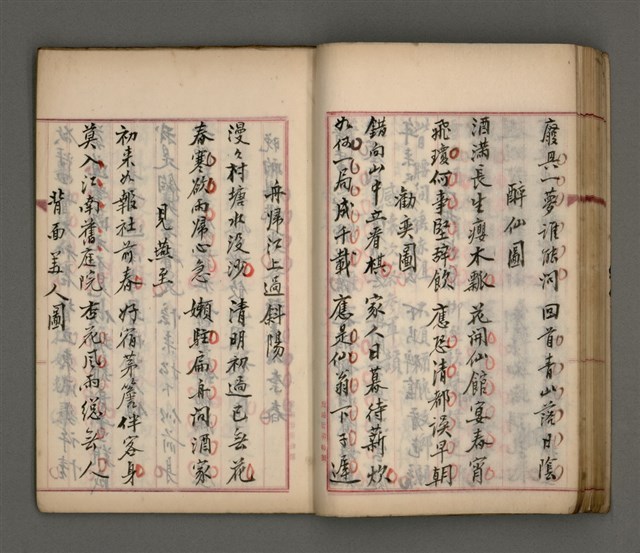 廢興一夢誰能問　回首青山落日陰
醉仙圖
酒滿長生癭木瓢　花開仙館宴春宵
飛瓊何事堅辭飲　應恐清都誤早朝
觀奕圖
錯向山中立看棋　家人日暮待薪炊
如何一局成千載　應是仙翁下子遲
舟歸江上過斜陽
漫々村塘水没沙　清明初過已無花
春寒欲雨歸心急　嬾駐扁舟問酒家
見燕至
初来如報社前春　好宿茅簷伴客身
莫入江南舊庭院　杏花風雨總無人
背面美人圖